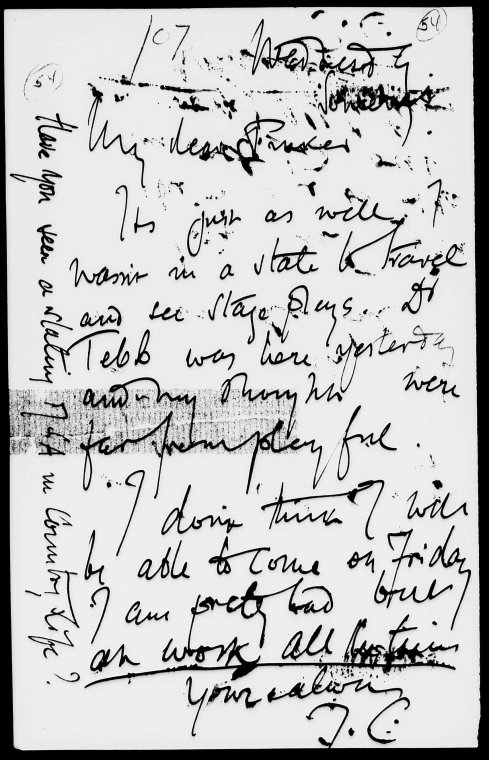 J. C.
54
107
Wednesday.
54
My dear Pinker
Its just as well I
wasn't in a state to travel
and see stage plays. Dr
Tebb was here yesterday
and my thoughts were
far from playful.
I don't think I will
be able to come on Friday
I am pretty bad but
at work all the time
Yours always
J. C.
Have you seen a slating of SA in Country Life?